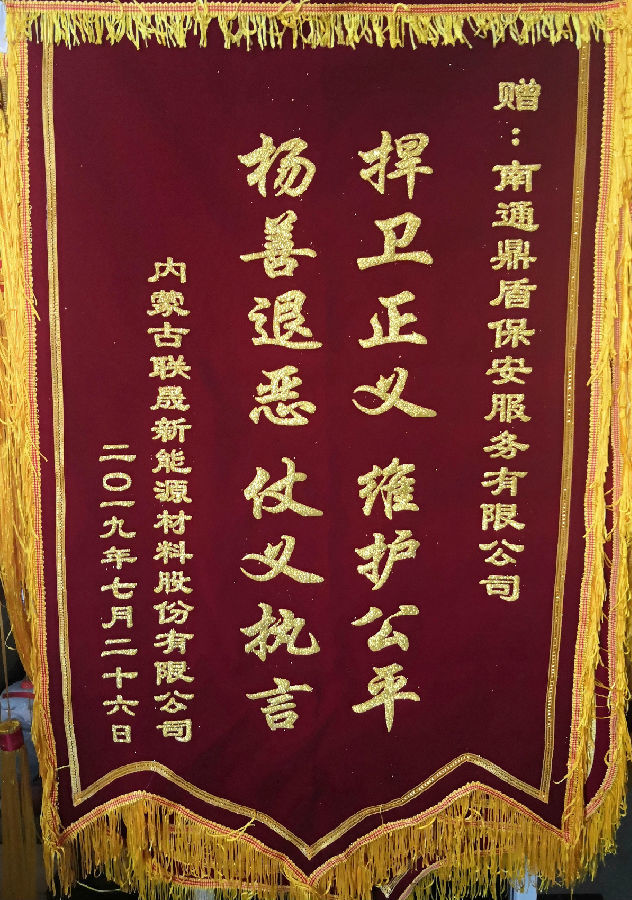 赠：南通鼎盾保安服务有限公司
捍卫正义 维护公平
杨善退恶 仗义执言
内蒙古联晟新能源材料股份有限公司
二〇一九年七月二十六日